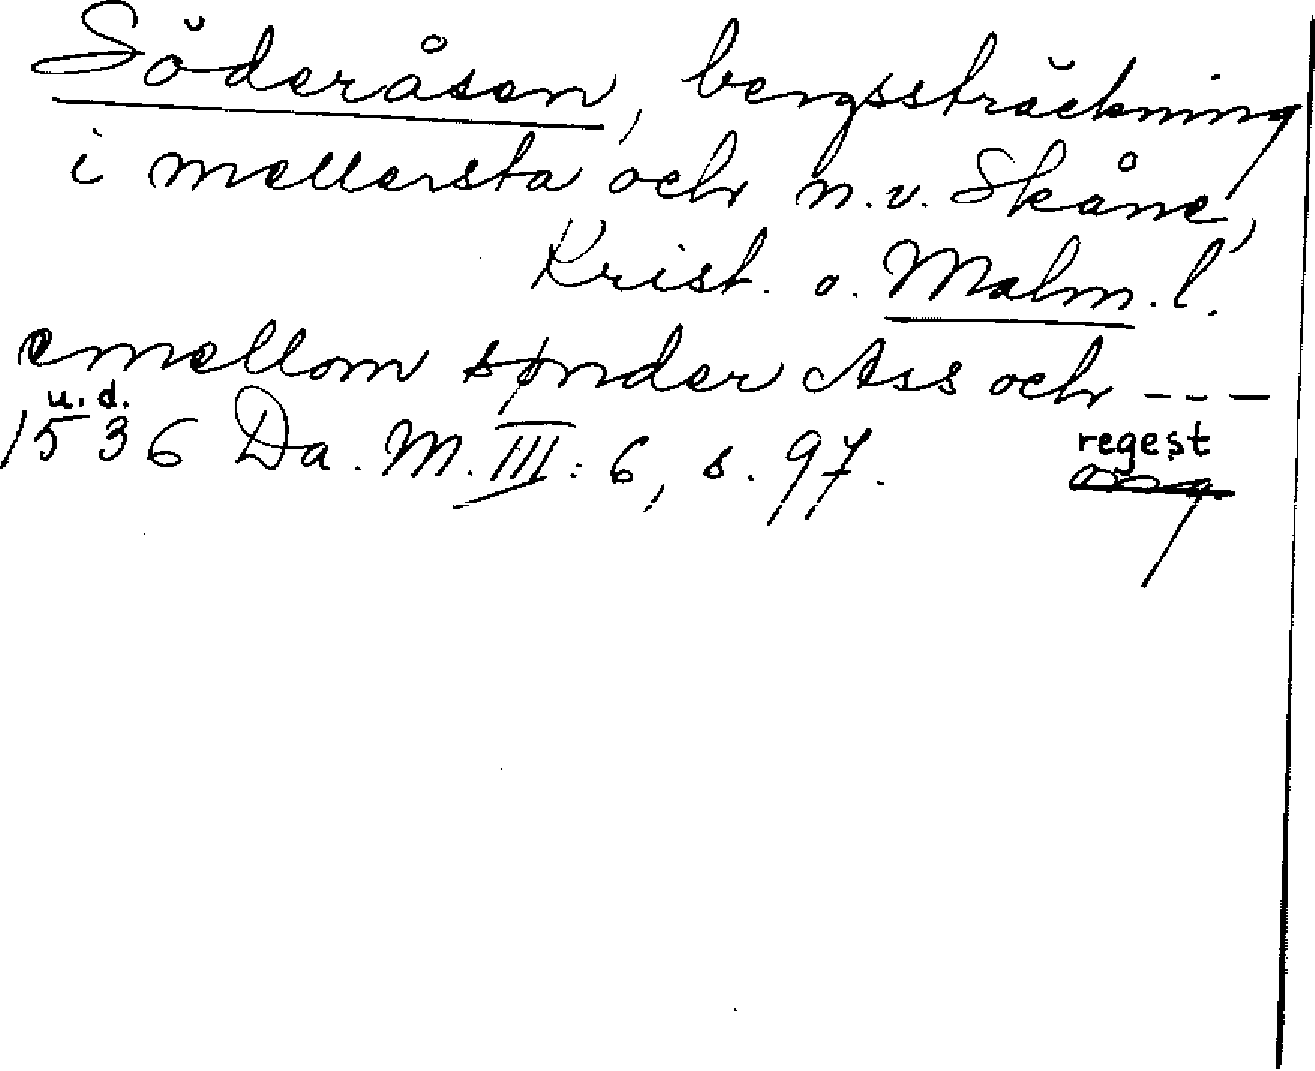 Söderåsen, bergssträckning
i mellersta och n.v. Skåne,
Krist. o. Malm. l.
emellom sønder Ass och ---
u.d.
1536 Da. M. III: 6, s. 97.
regest